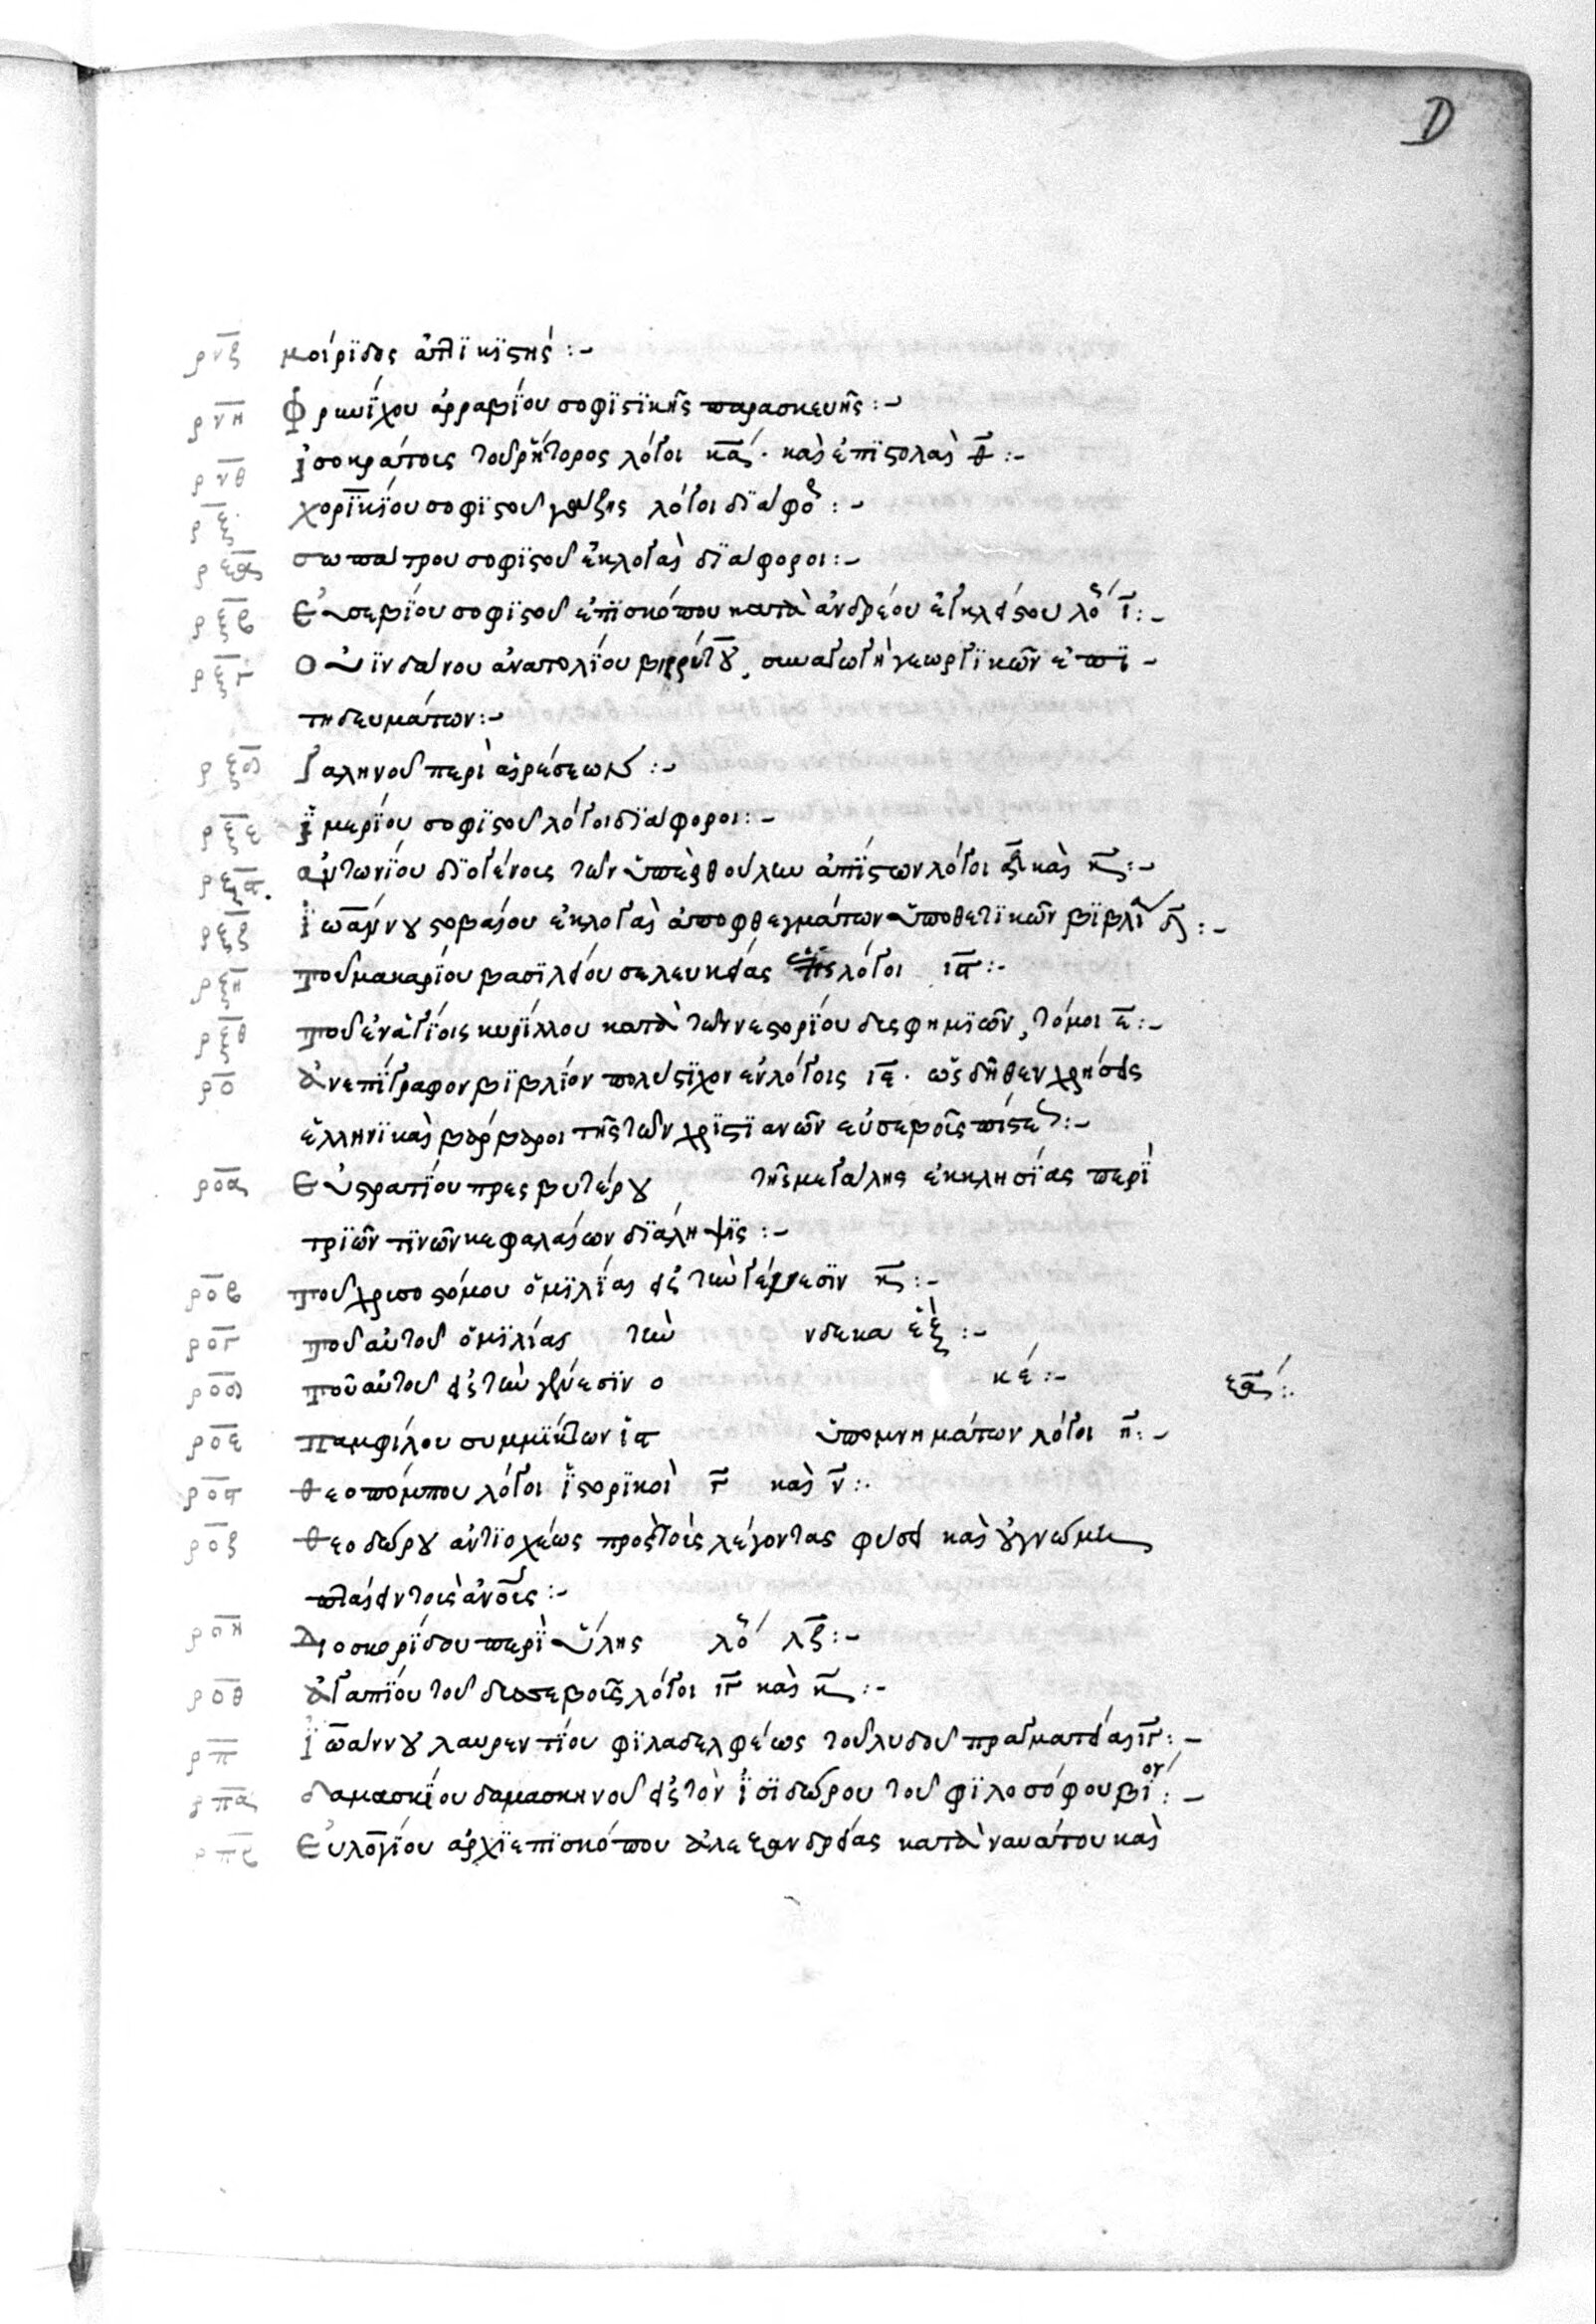 D
ρνζ μοίριδος ἀττικιστής :-
ρνη Φρυνίχου ἀρραβίου σοφιστικῆς παρασκευῆς :-
ρνθ ἰσοκράτους τοῦ ρήτορος λόγοι κα. καὶ ἐπιστολαὶ θ :-
ρξ χορικίου σοφιστοῦ γάζης λόγοι διάφο :-
ρξα σωπάτρου σοφιστοῦ ἐκλογαὶ διάφοροι :-
ρξβ Εὐσεβίου σοφιστοῦ ἐπισκόπου κατὰ ἀνδρέου λό ι :-
ρξγ Οὐινδάνου ἀνατολίου βηρύτου, συναγωγὴ γεωργικῶν ἐπι-
τηδευμάτων :-
ρξδ Γαληνοῦ περὶ αἱρέσεων :-
ρξε ἱμερίου σοφιστοῦ λόγοι διάφοροι :-
ρξϛ ἀντωνίου διογένους τῶν ὑπὲρ θούλην ἀπίστων λόγοι δ καὶ κ :-
ρξζ ἰωάννου στοβαίου ἐκλογαὶ ἀποφθεγμάτων ὑποθετικῶν βιβλί δ :-
ρξη τοῦ μακαρίου βασιλείου σελευκείας λόγοι ιε :-
ρξθ τοῦ ἐν ἁγίοις κυρίλλου κατὰ τῶν νεστορίου δυσφημιῶν, τόμοι ε :-
ρο ἀνεπίγραφον βιβλίον πολύστιχον ἐν λόγοις ιε. ὡς δῆθεν χρήσεις
ἕλληνι καὶ βάρβαροι τῆς τῶν χριστιανῶν εὐσεβοῦς πίστε :-
ροα Εὐστρατίου πρεσβυτέρου τῆς μεγάλης ἐκκλησίας περὶ
τριῶν τινῶν κεφαλαίων διάληψις :-
ροβ τοῦ χρισοστόμου ὁμιλίαι εἰς τὴν γένεσιν κ :-
ρογ τοῦ αὐτοῦ ὁμιλίαι τὴν νδεκα ἑξ :-
ροδ τοῦ αὐτοῦ εἰς τὴν γένεσιν ο κέ :- ξα :.
ροε παμφίλου συμμίκτων ἱστ ὑπομνημάτων λόγοι η :-
ροϛ θεοπόμπου λόγοι ἱστορικοὶ γ καὶ ν :.
ροζ θεοδώρου ἀντιοχέως πρὸς τοὺς λέγοντας φύσει καὶ οὐ γνώμη
πταίειν τοὺς ἀνους :-
ροη Διοσκορίδου περὶ ὕλης λό λζ :-
ροθ ἀγαπίου τοῦ δυσσεβοῦς λόγοι γ καὶ κ :-
ρπ ἰωάννου λαυρεντίου φιλαδελφέως τοῦ λυδοῦ πραγματείαι γ :-
ρπα δαμασκίου δαμασκηνοῦ εἰς τὸν ἰσιδώρου τοῦ φιλοσόφου βίον :-
ρπβ Εὐλογίου ἀρχιεπισκόπου ἀλεξανδρείας κατὰ ναυάτου καὶ